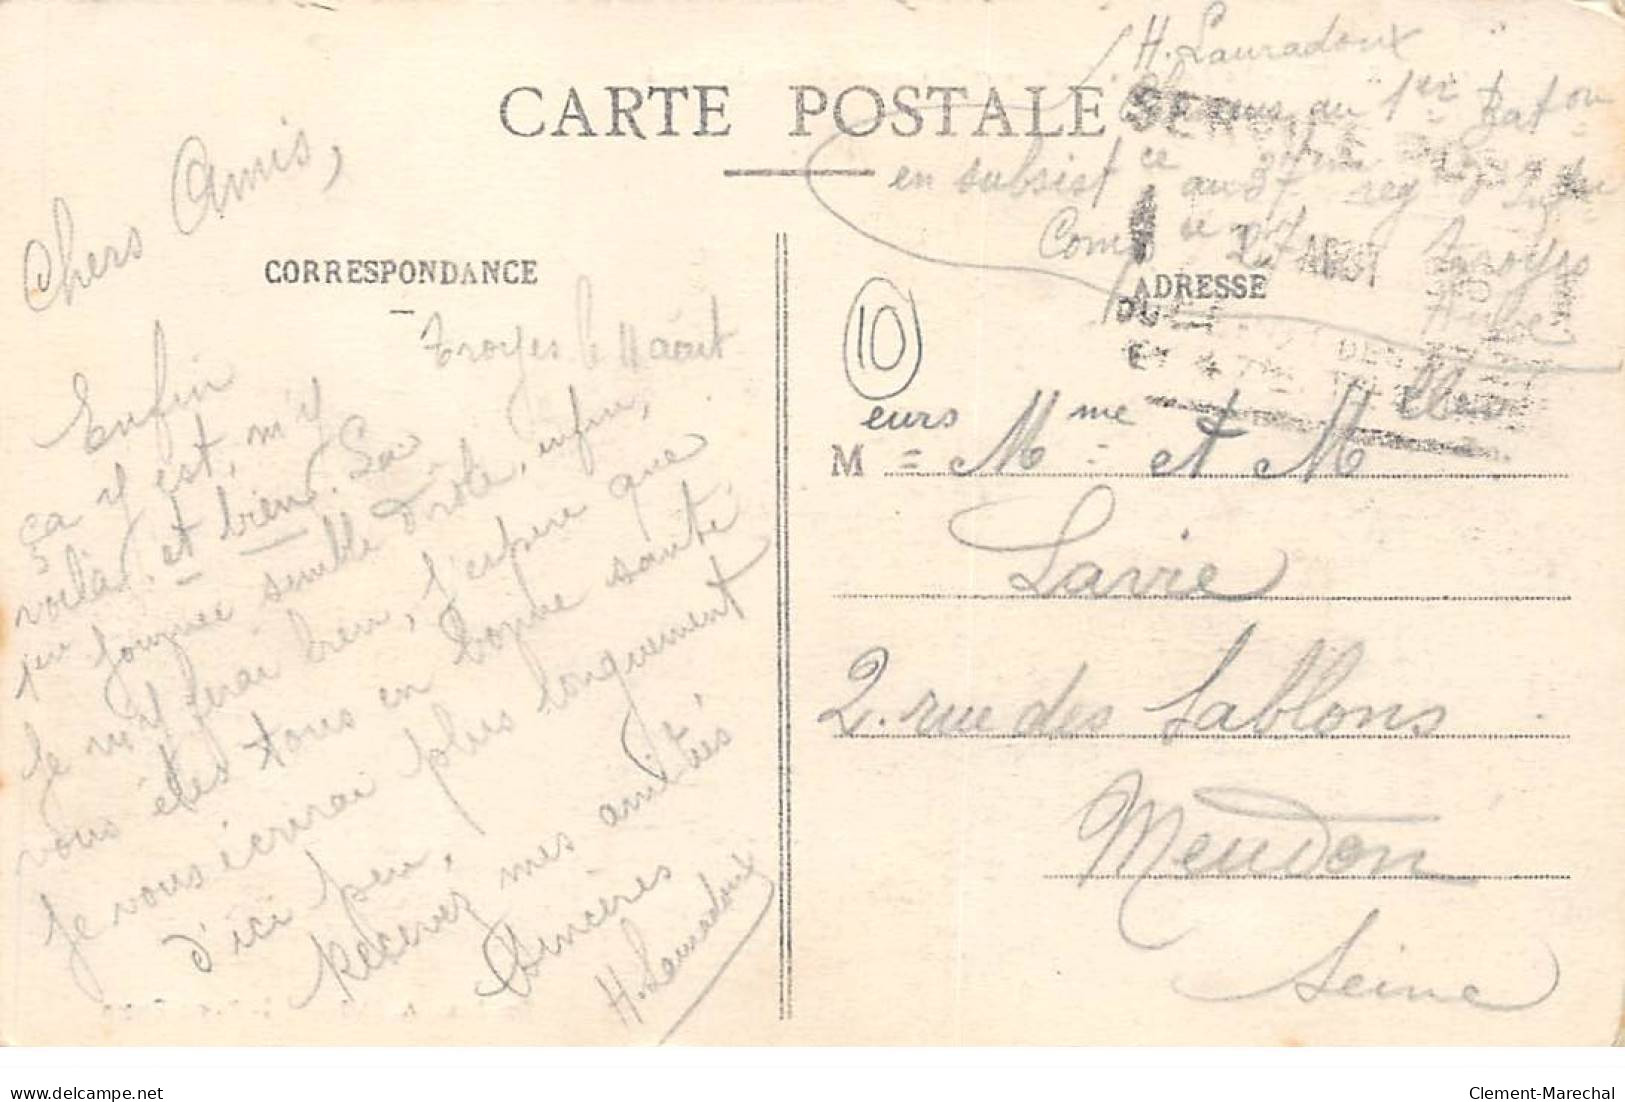 H. Lauradoux
au 1er Bat on
en subsist ce au 37 reg d'Inf
Comp ie Troyes
Aube
CARTE POSTALE
CORRESPONDANCE
ADRESSE
27 AOUT
10
Chers Amis,
Troyes le 11 août
Enfin
ça y est, m'y
voilà. et bien. La
journée semble drôle, enfin,
je m'y ferai bien, j'espère que
vous êtes tous en bonne santé
Je vous écrirai plus longuement
d'ici peu,
Recevez mes amitiés
Sincères
H. Lauradoux
M eurs Mme et Melles
Lavie
2. rue des Sablons
Meudon
Seine
delcampe.net
Clement-Marechal